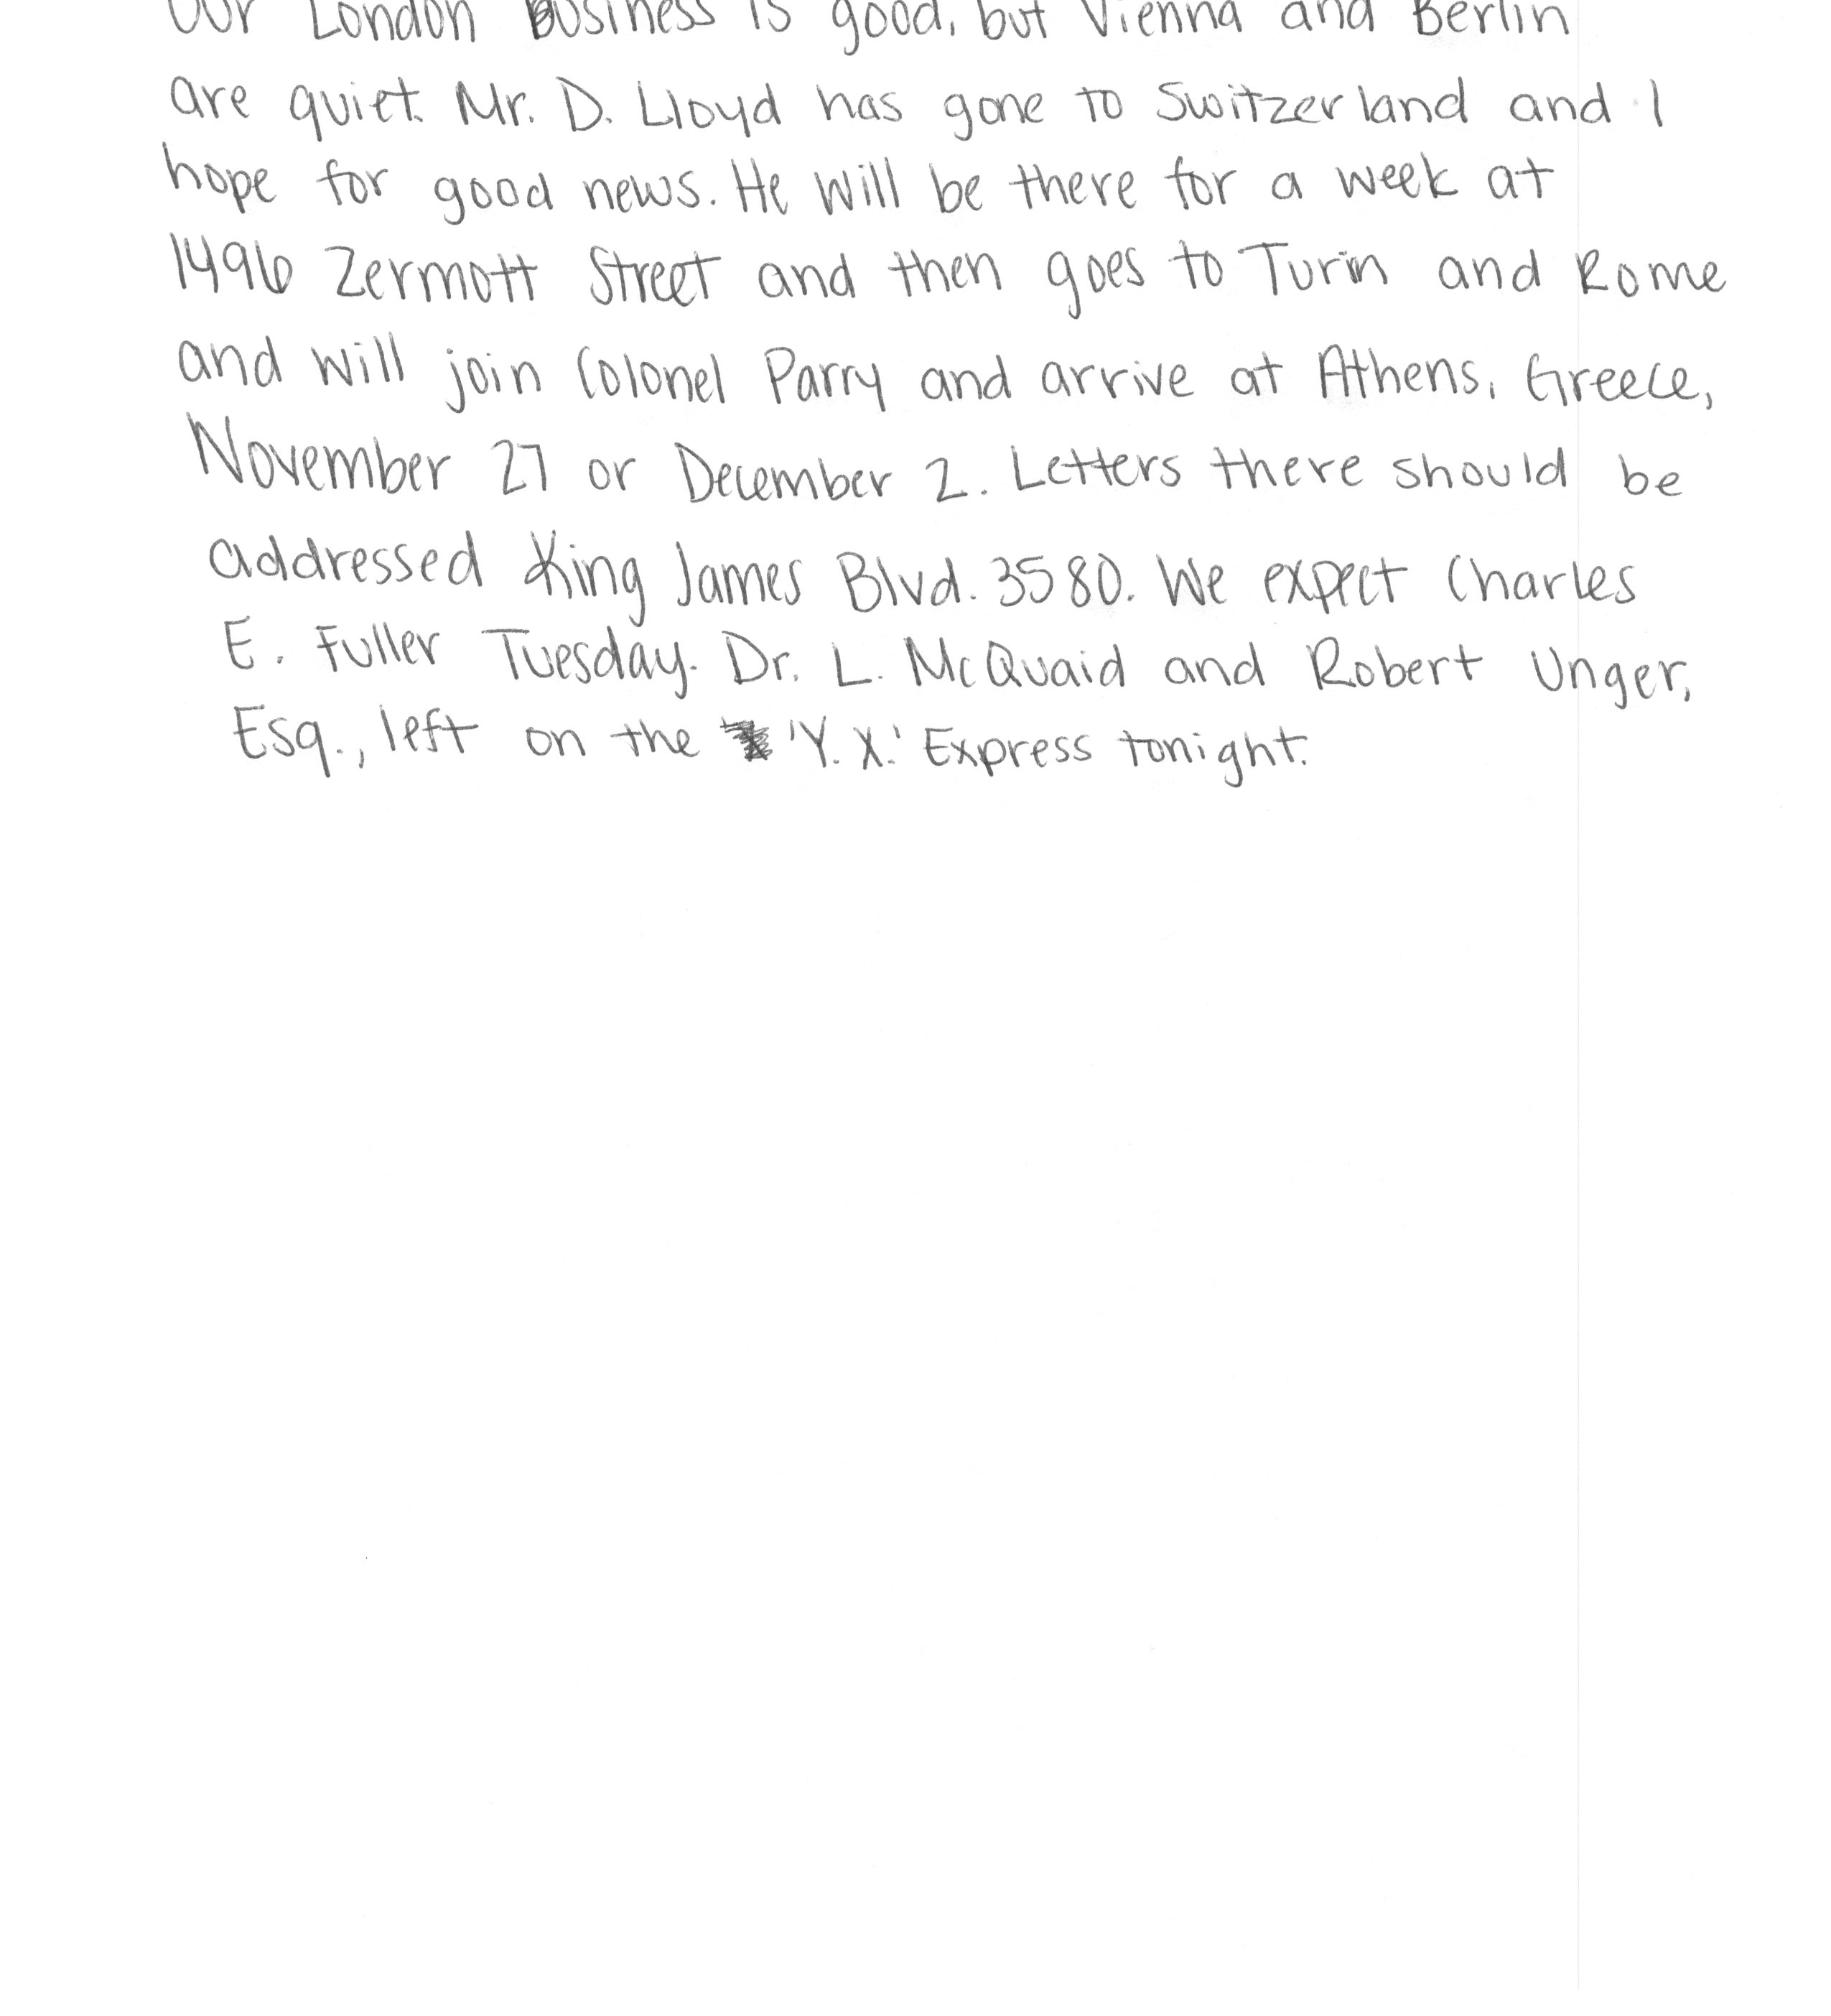 Our London Business is good, but Vienna and Berlin
are quiet. Mr. D. Lloyd has gone to Switzerland and I
hope for good news. He will be there for a week at
1496 Zermott Street and then goes to Turin and Rome
and will join Colonel Parry and arrive at Athens, Greece,
November 27 or December 2. Letters there should be
addressed King James Blvd. 3580. We expect Charles
E. Fuller Tuesday. Dr. L. McQuaid and Robert Unger,
Esq., left on the 'Y.X.' Express tonight.